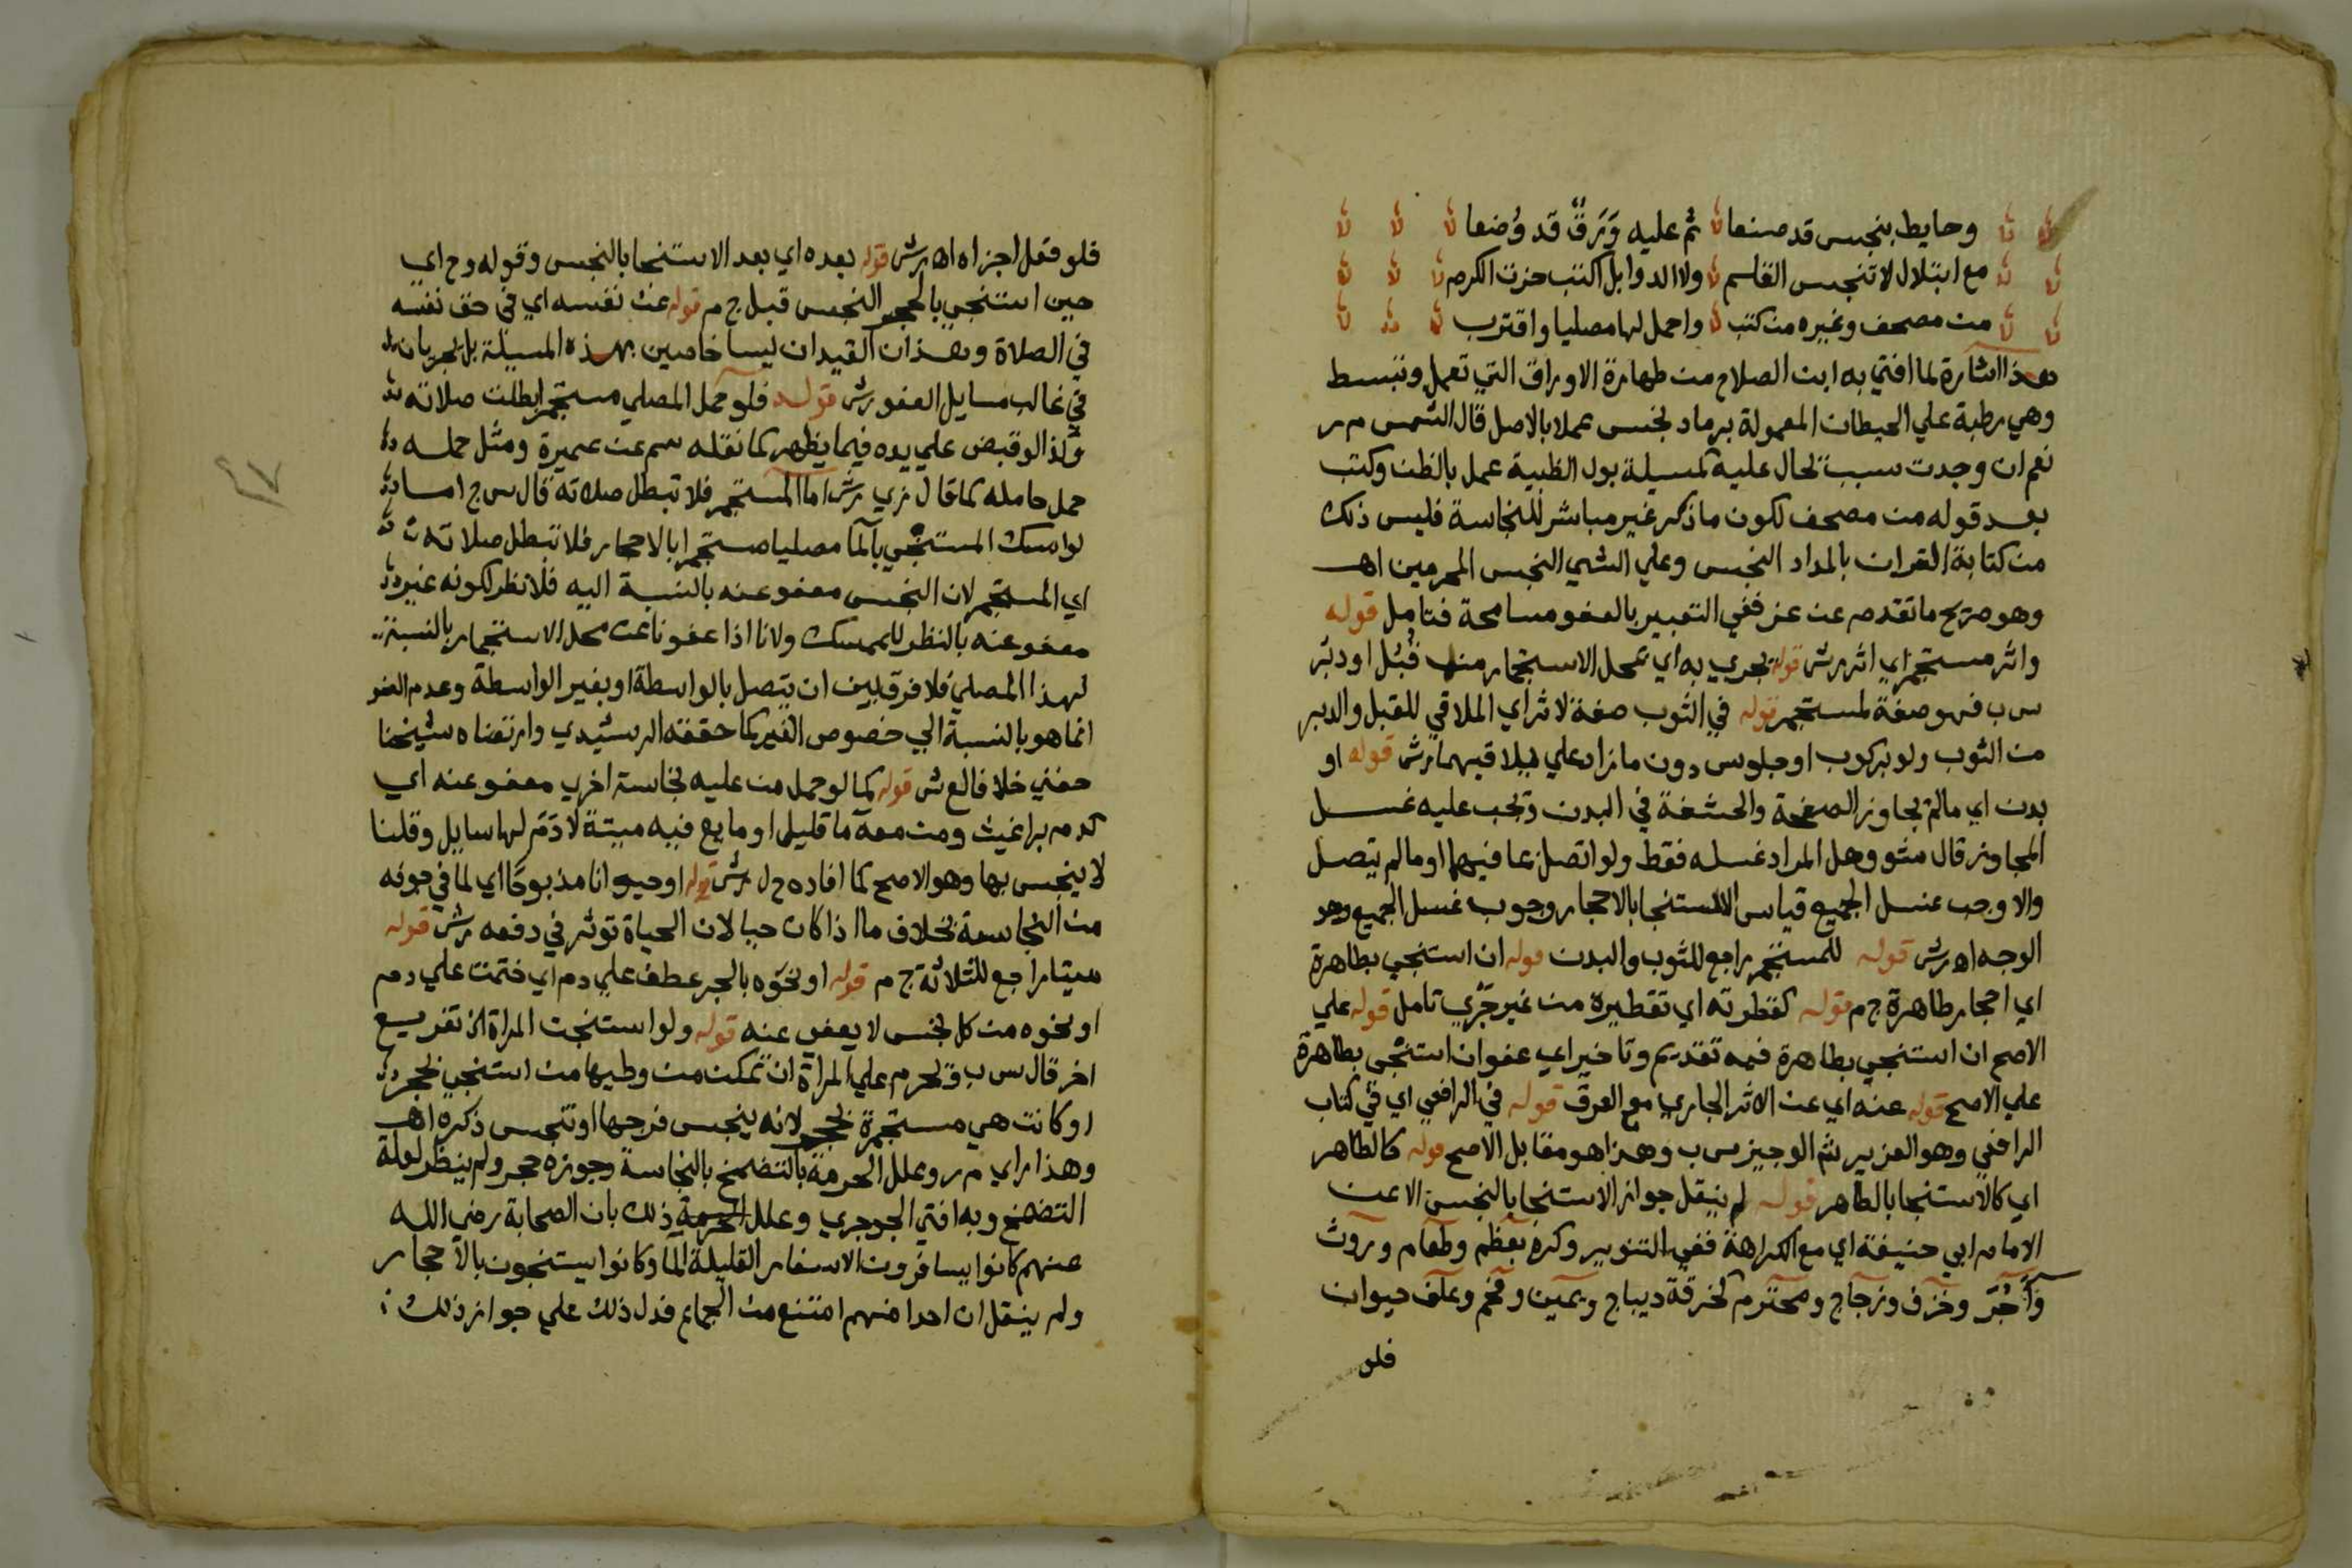 وحايط بنجس قد صنعا ثم عليه وَرَقٌ قد وُضعا
مع ابتلال لا تنجس القلم ولا الدوا بل اكتب حزت الكرم
من مصحف وغيره من كتب واحمل لها مصليا واقترب
هذا اشارة لما افتي به ابن الصلاح من طهارة الاوراق التي تعمل وتبسط
وهي رطبة علي الحيطان المعمولة برماد نجس عملا بالاصل قال الشمس م ر
نعم ان وجدت سبب نحال عليه كمسيلة بول الظبية عمل بالظن وكتب
بعد قوله من مصحف لكون ما ذكر غير مباشر للنجاسة فليس ذلك
من كتابة القران بالمداد النجس وعلي الشي النجس المحرمين اهـ
وهو صريح ما تقدم عن عز ففي التعبير بالعفو مسامحة فتامل قوله
واثر مستجمر اي اثر رش قوله تجري به اي بمحل الاستجمار منه قُبُل او دبر
س ب فهو صفة لمستجمر قوله في الثوب صفة لاثر اي الملاقي للقبل والدبر
من الثوب ولو بركوب او جلوس دون ما زاد علي ما يلاقيهما رش قوله او
بدن اي ما لم يجاوز الصفحة والحشفة في البدن وتجب عليه غسل
المجاوز قال مثو وهل المراد غسله فقط ولو اتصل بما فيهما او ما لم يتصل
والا وجب غسل الجميع قياس الاستنجا بالاحجار وجوب غسل الجميع وهو
الوجه اهـ رش قوله للمستجمر راجع للثوب والبدن قوله ان استنجي بطاهرة
اي احجار طاهرة ج م قوله كقطرته اي تقطيره من غير جَرْي تامل قوله علي
الاصح ان استنجي بطاهرة فيه تقديم وتاخير اي عفو ان استنجي بطاهرة
علي الاصح قوله عنه اي عن الاثر الجاري مع العرق قوله في الرافعي اي في كتاب
الرافعي وهو العزيز شر الوجيز س ب وهذا هو مقابل الاصح قوله كالطاهر
اي كالاستنجا بالطاهر قوله لم ينقل جواز الاستنجا بالنجس الا عن
الامام ابي حنيفة اي مع الكراهة ففي التنوير وكره بعظم وطعام وروث
وآجُر وخزف وزجاج ومحترم كخرقة ديباج ويمين وفحم وعلف حيوان
فلو
فلو فعل اجزاه اهـ رش قوله بعده اي بعد الاستنجا بالنجس وقوله و ح اي
حين استنجي بالحجر النجس قبل ج م قوله عن نفسه اي في حق نفسه
في الصلاة وهذان القيدان ليسا خاصين بهذه المسيلة بل يجريان
في غالب مسايل العفو رش قوله فلو حمل المصلي مستجمرا بطلت صلاته
وكذا لو قبض علي يده فيما يظهر كما نقله سم عن عميرة ومثل حمله
حمل حامله كما قال زي رش اما المستجمر فلا تبطل صلاته قال س ج اما
لو امسك المستنجي بالما مصليا مستجمرا بالاحجار فلا تبطل صلاته
اي المستجمر لان النجس معفو عنه بالنسبة اليه فلا نظر لكونه غير
معفو عنه بالنظر للممسك ولانا اذا عفونا عن محل الاستجمار بالنسبة
لهذا المصلي فلا فرق بين ان يتصل بالواسطة او بغير الواسطة وعدم العفو
انما هو بالنسبة الي خصوص الغير كما حققه الرشيدي وارتضاه شيخنا
حفني خلافا لع ش قوله كما لو حمل من عليه نجاسة اخري معفو عنه اي
كدم براغيث ومن معه ما قليل او مايع فيه ميتة لا دَمَ لها سايل وقلنا
لا ينجس بها وهو الاصح كما افاده ح ل رش قوله او حيوانا مذبوحًا اي لما في جوفه
من النجاسة بخلاف ما اذا كان حيا لان الحياة توثر في دفعه رش قوله
ميتا راجع للثلاثة ج م قوله او نحوه بالجر عطف علي دم اي ختمت علي دم
او نحوه من كل نجس لا يعفي عنه قوله ولو استنجت المراة الخ تفريع
اخر قال س ب ويحرم علي المراة ان تمكن من وطيها من استنجي بحجر
او كانت هي مستجمرة بحجر لانه ينجس فرجها او تنجس ذكره اهـ
وهذا راي م ر وعلل الحرمة بالتضمخ بالنجاسة وجوزه حجر ولم ينظر لعلة
التضمخ وبه افتي الجوجري وعلل ذلك بان الصحابة رضي الله
عنهم كانوا يسافرون الاسفار القليلة الما وكانوا يستنجون بالاحجار
ولم ينقل ان احدا منهم امتنع من الجماع فدل ذلك علي جواز ذلك